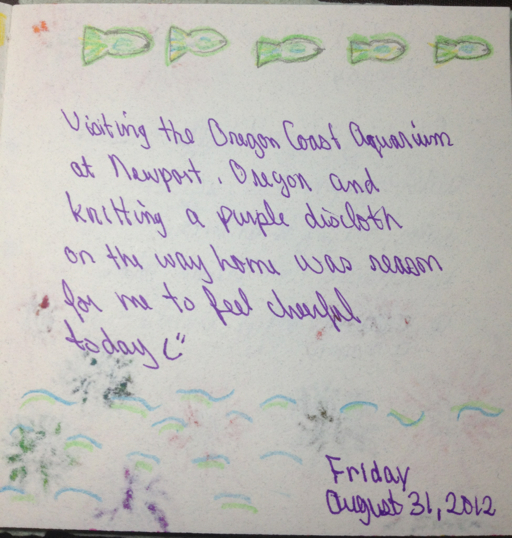 Visiting the Oregon Coast Aquarium
at Newport, Oregon and
knitting a purple discloth
on the way home was reason
for me to feel cheerful
today
Friday
August 31, 2012